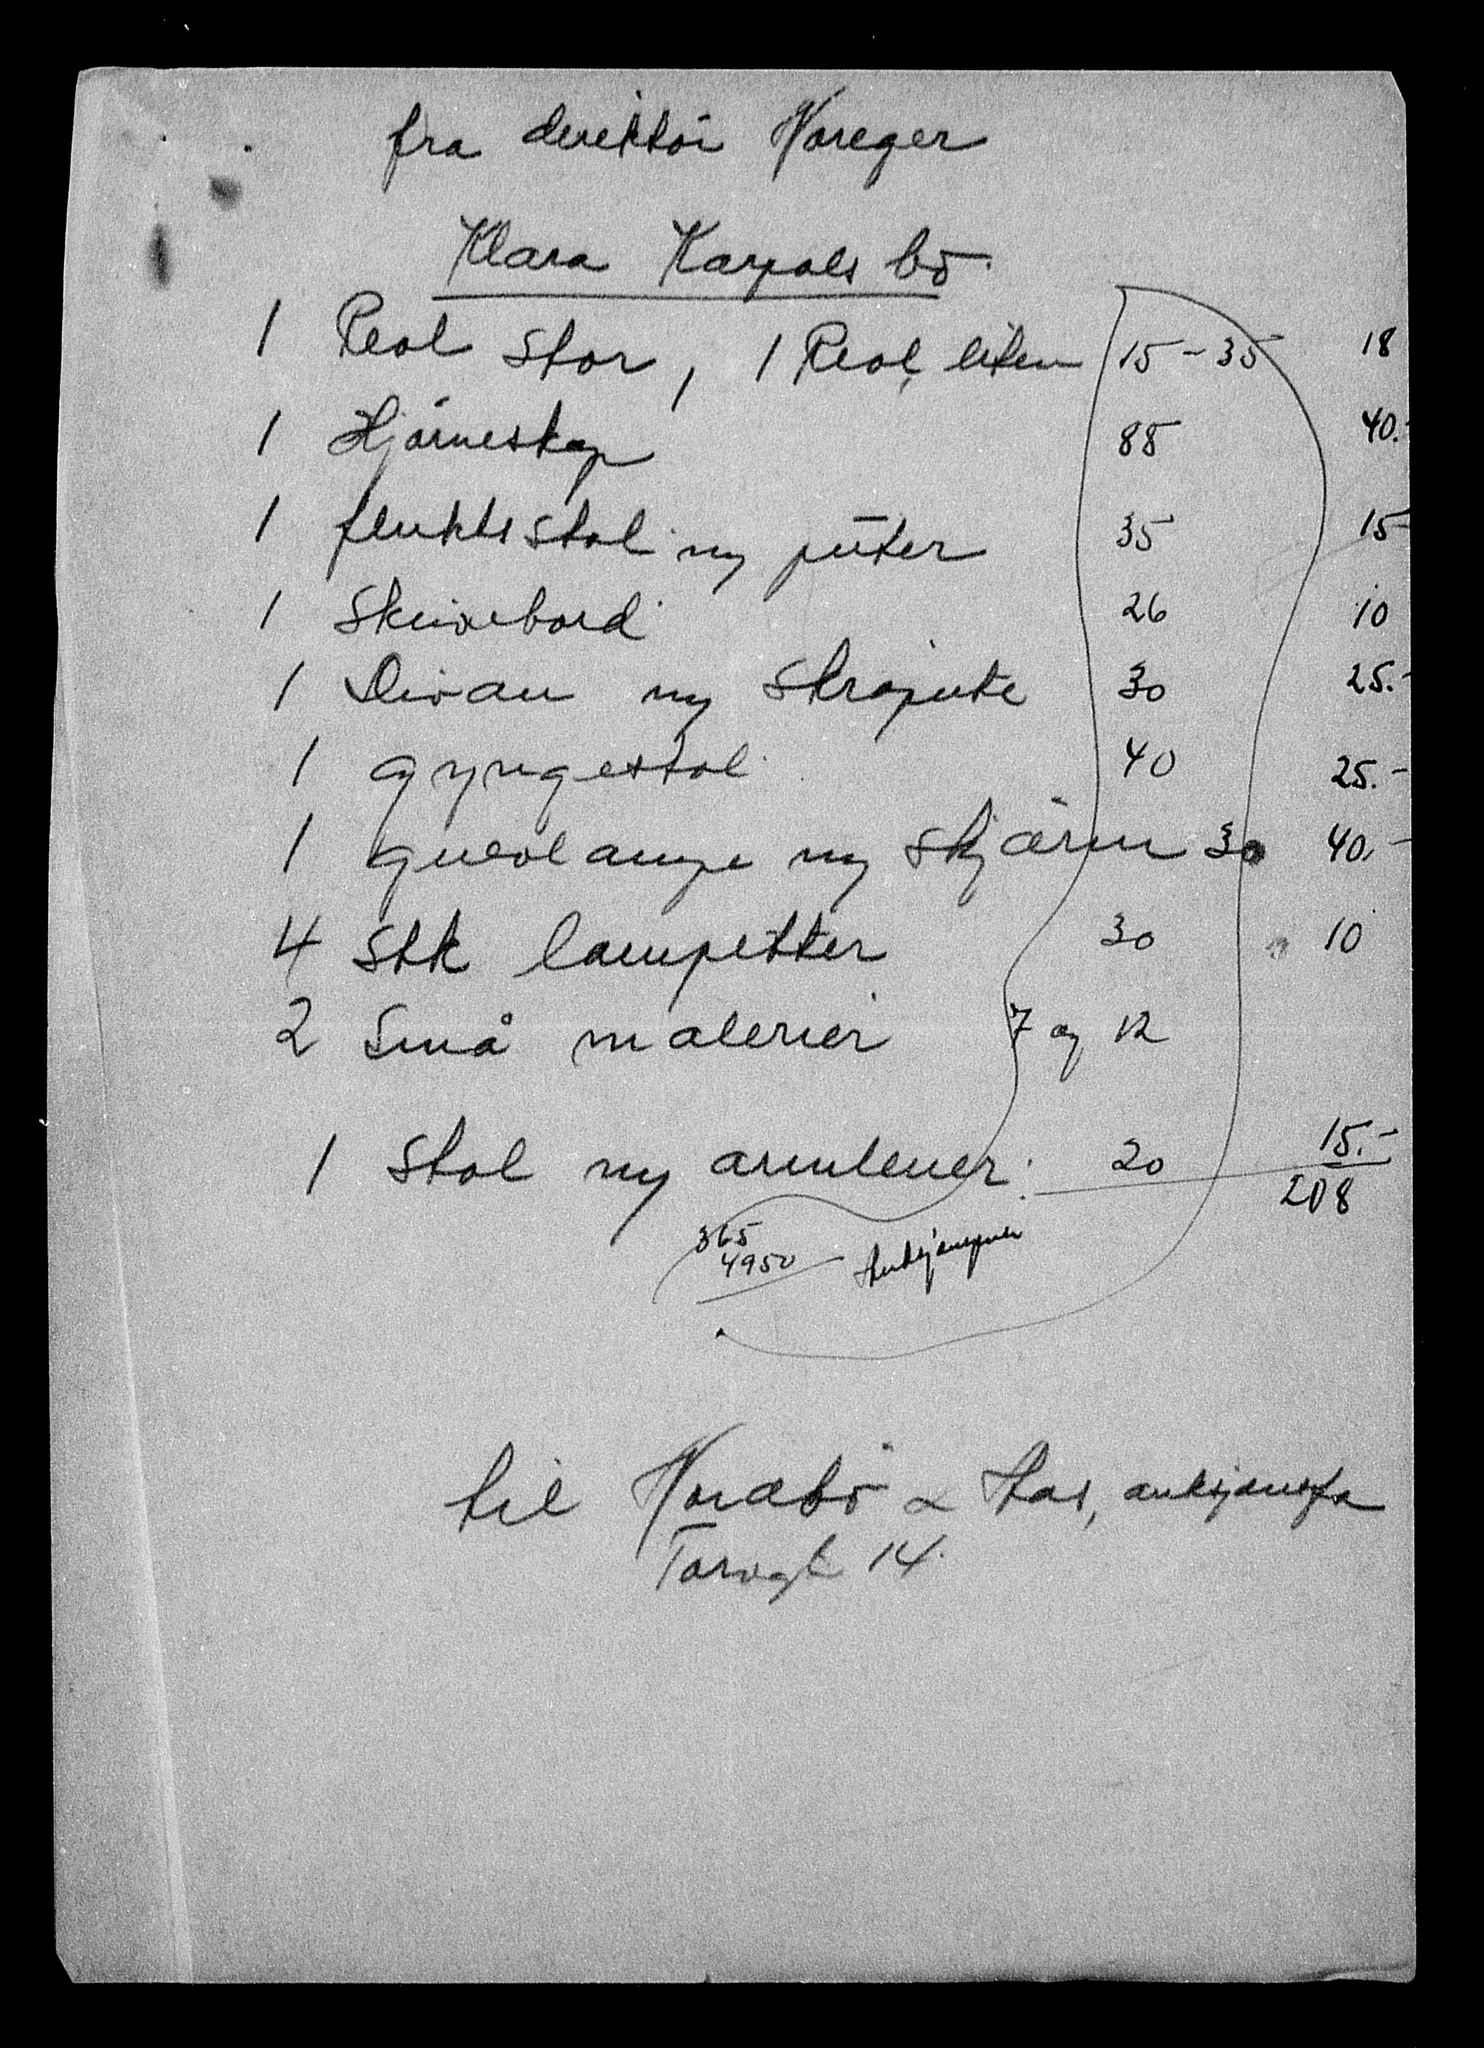 fra direktör Horeger
Klara Karpols bö.
1 Reol stor, 1 Reol, liten 15 - 35 18
1 Hjörneskap 88 40.-
1 fluktsstol m/ puter 35 15-
1 Skrivebord 26 10
1 Divan m/ skråpute 30 25.-
1 gyngestol 40 25.-
1 gulvlampe m/ skjärm 30 40.-
4 stk lampetter 30 10
2 små malerier 7 og 12
1 stol m/ armlener. 20 15.-
208
365
4950
til & auksjonsfa
Torvgt 14.